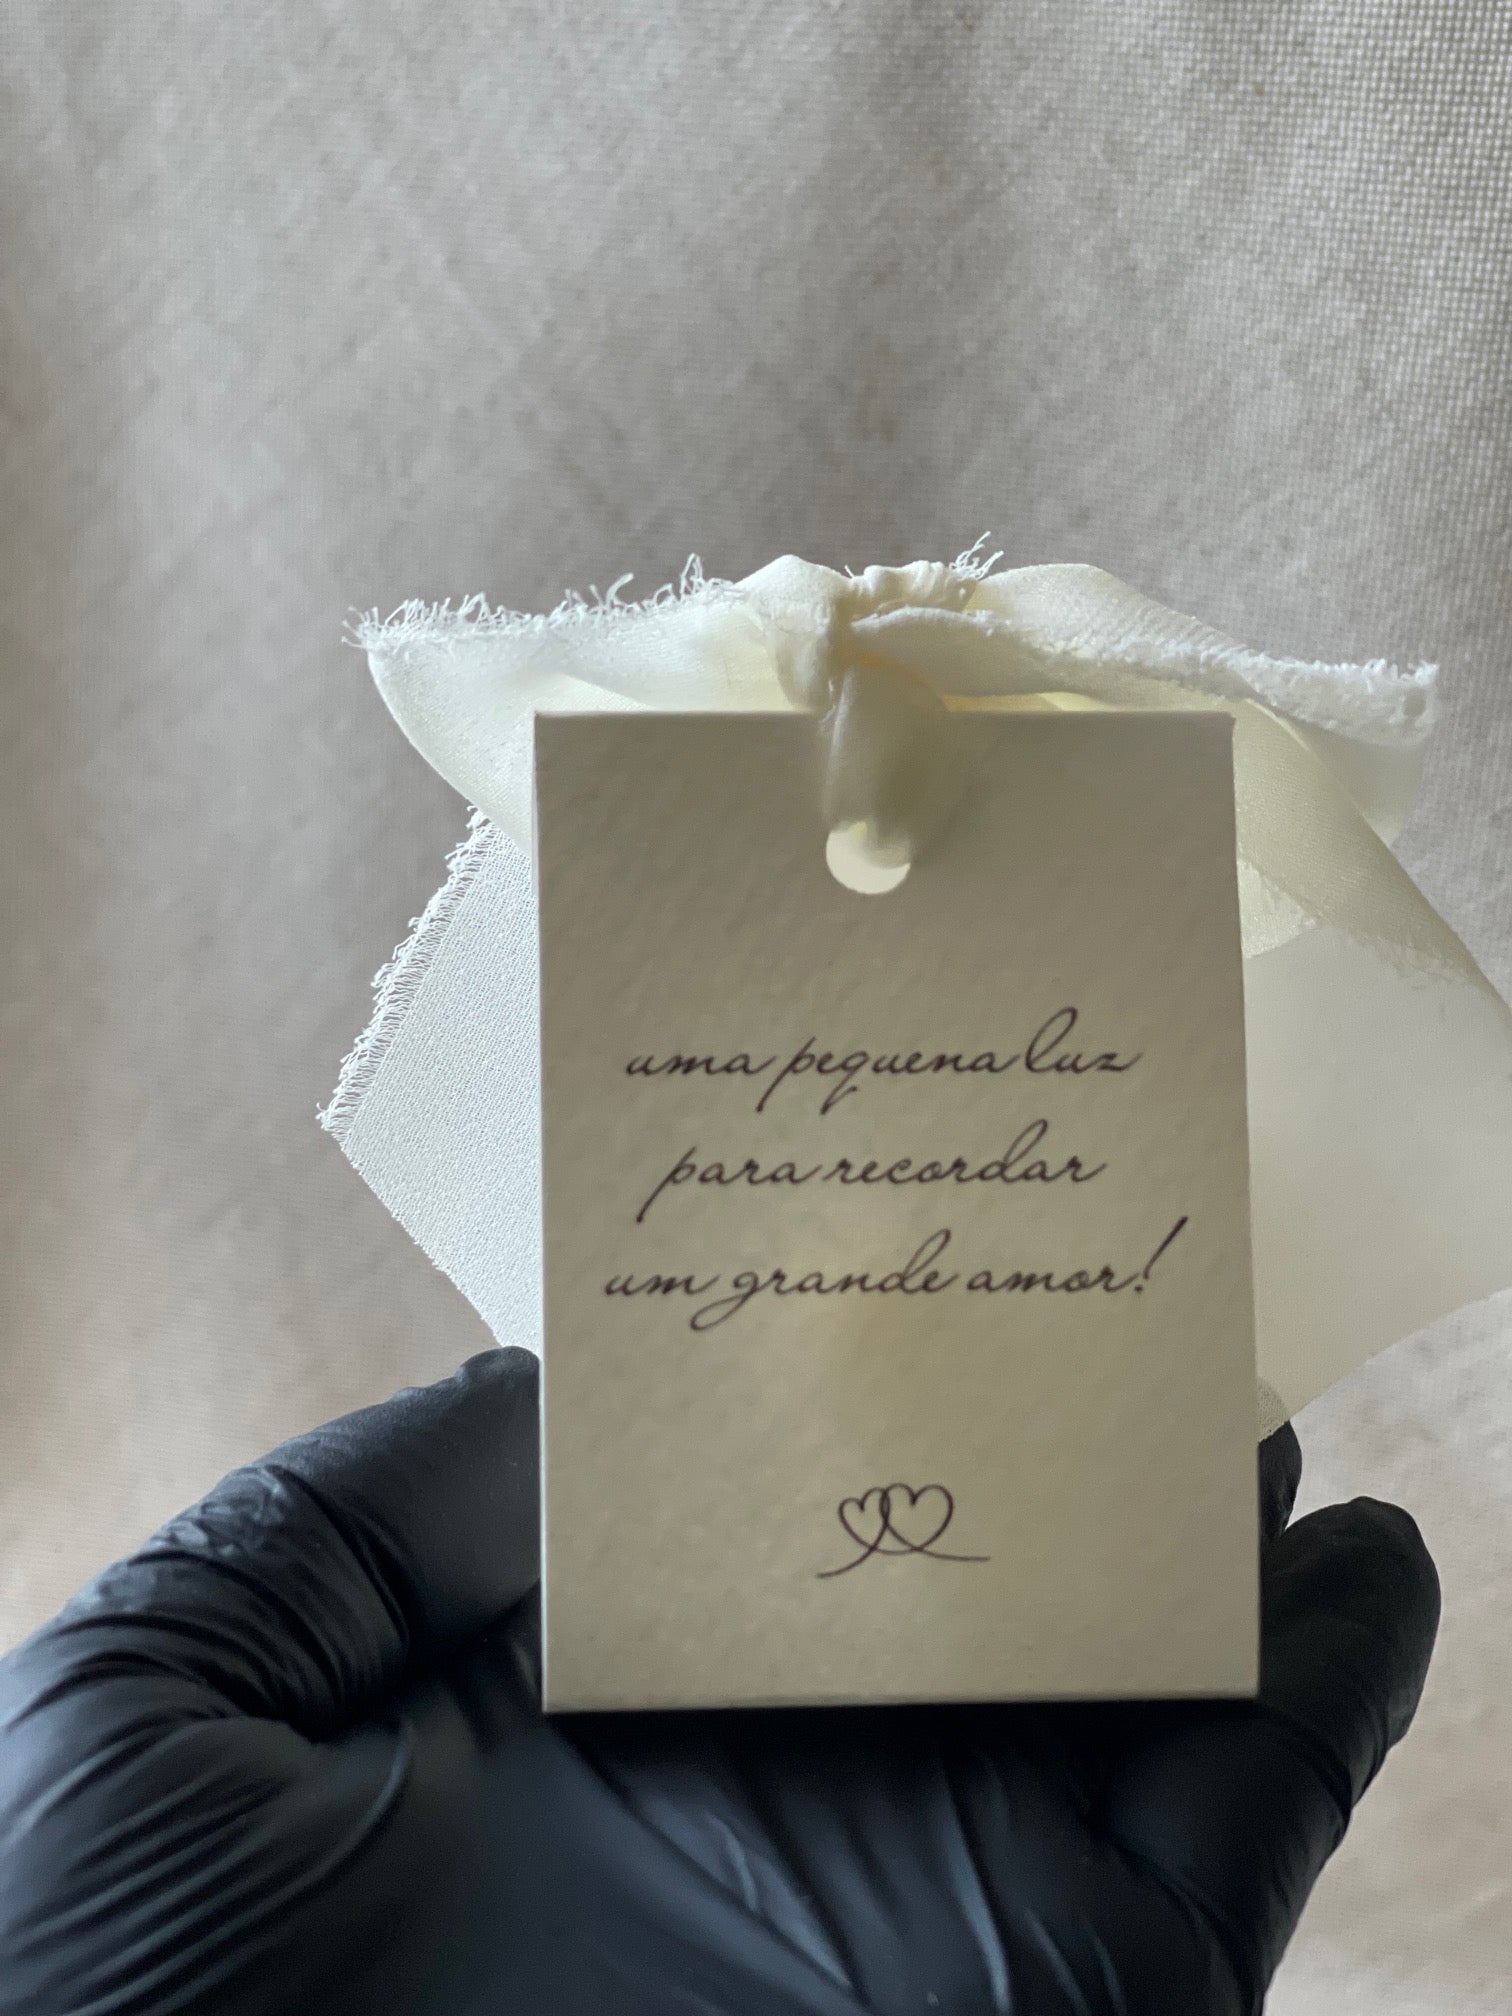 uma pequena luz
para recordar
um grande amor!